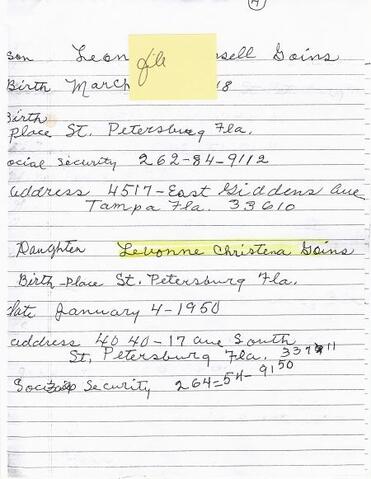 son Leon sell Goins
Birth March 18
file
Birth
Place St. Petersburg Fla.
ocial Security 262-84-9112
address 4517-East Giddens Ave
Tampa Fla. 33610
Daughter Levonne Christena Goins
Birth-Place St. Petersburg Fla.
date January 4-1950
address 40 40-17 ave South
St. Petersburg Fla.
Security 264-54-9150